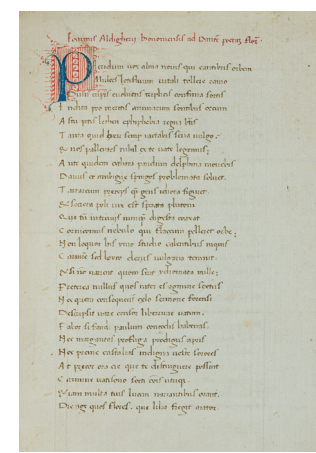 Joannis Aldigherii Bononiensis ad Dantem poetam flor.
Pieridum vox alma novis qui cantibus orbem
Mulces letifluum vitali tollere ramo
Dum cupis evolvens triplicis confinia sortis
Indita pro meritis animarum sontibus orcum
Astripetis lethen epiphebia regna btis
Tanta quid heu semp iactabis seria vulgo
Et nos pallentes nihil ex te vate legemus
Ante quidem cithara pandum delphina movebis
Davus et ambigue spingos problemata solvet
Tartareum preceps q gens idiota figuret
Et secreta poli vix
Que tn in triviis nunq digesta coaxat
Comicomus nebulo qui flaccum pelleret orbe
Non loquor his studio callentibus inquis
Carmine sed laico clerus vulgaria temnit
Et si non varient sint ydiomata mille
Preterea nullus quos inter es agmine sextus
Nec quem consequeris celo sermone forensi
Descripsit quare censor liberrime vatum
Fabor si fandi paulum concedis habenas
Nec margaritas profliga prodigus apris
Nec preme castalias indigna veste sorores
At precor ora cie que te distinguere possint
Carmine vatisono sorti cois utriq
Et iam multa tuis lucem narratibus orant
Dic age quos flores que lilia fregit arator